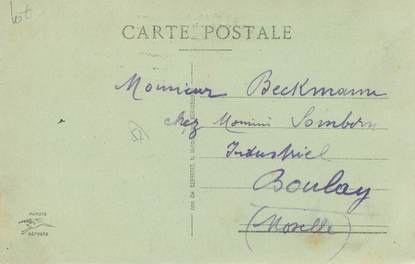 lot
CARTE POSTALE
Monsieur Beckmann
chez Monsieur Somborn
Industriel
Boulay
(Moselle)
57
MARQUE
DÉPOSÉE